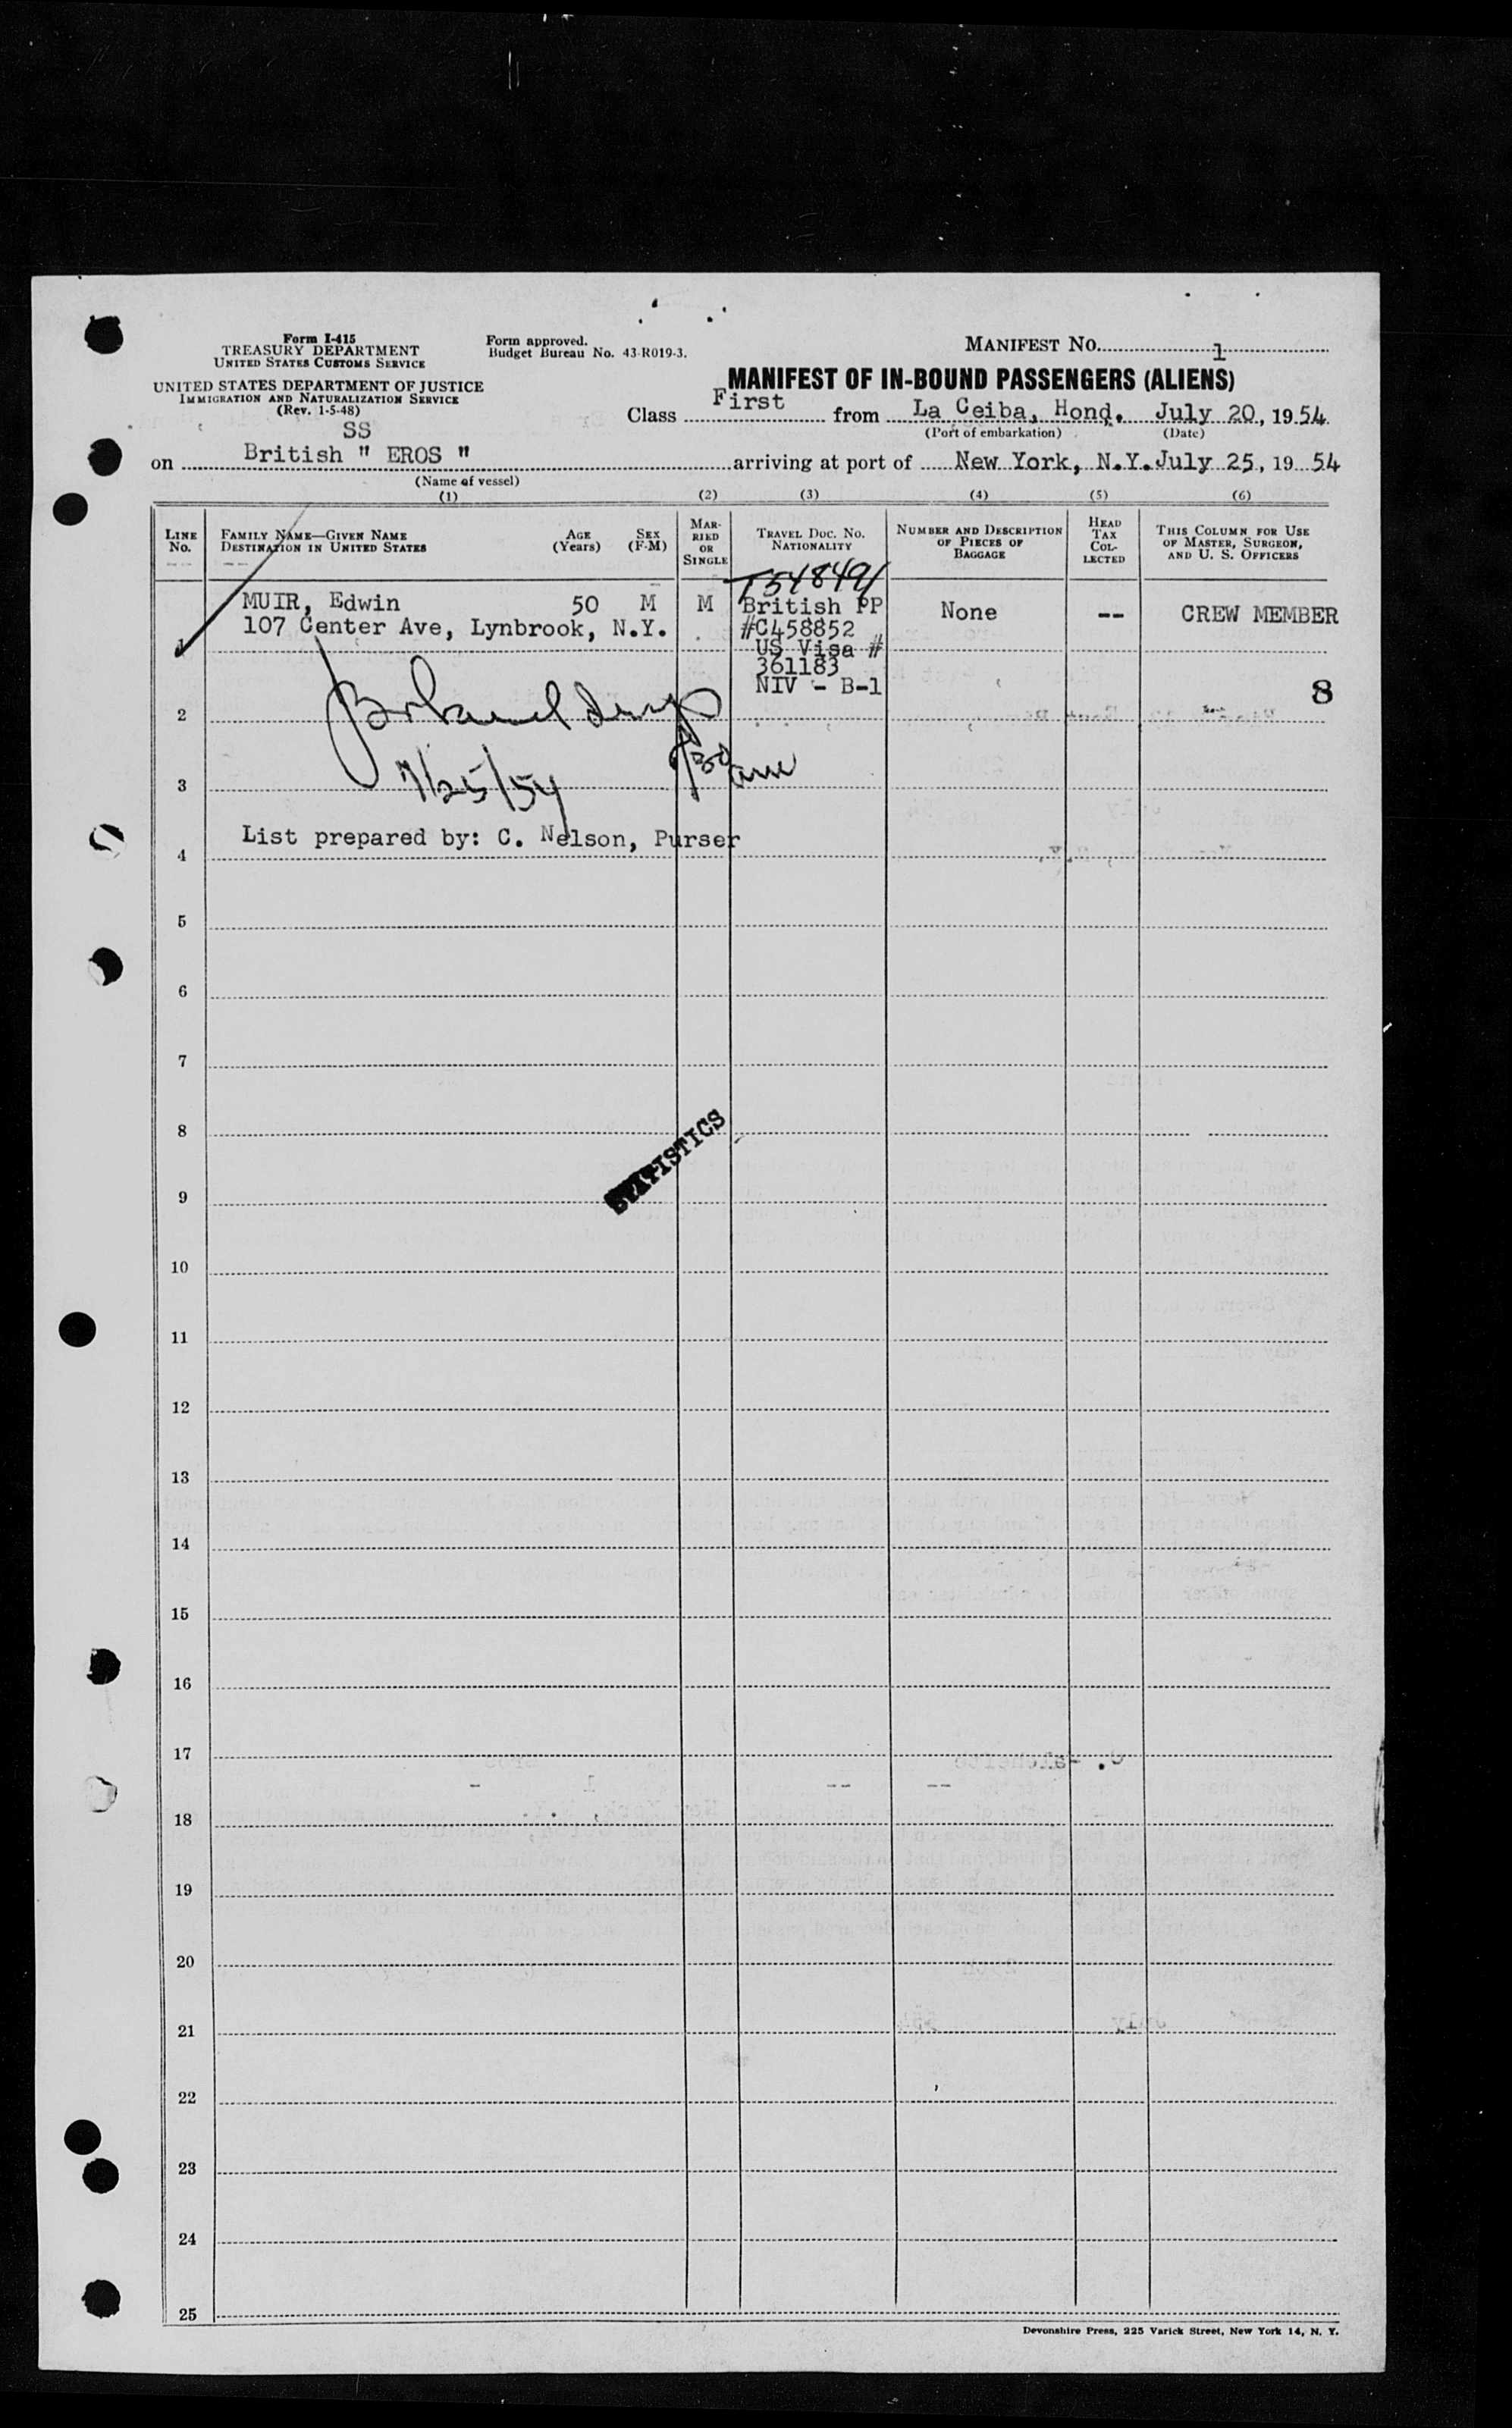 Form I-415
TREASURY DEPARTMENT
UNITED STATES CUSTOMS SERVICE
UNITED STATES DEPARTMENT OF JUSTICE
IMMIGRATION AND NATURALIZATION SERVICE
(Rev. 1-5-48)
Form approved.
Budget Bureau No. 43-R019-3.
MANIFEST NO. 1
MANIFEST OF IN-BOUND PASSENGERS (ALIENS)
Class First from La Ceiba, Hond. July 20, 1954
(Port of embarkation) (Date)
SS
on British " EROS " arriving at port of New York, N.Y. July 25, 19 54
(Name of vessel)
(1) (2) (3) (4) (5) (6)
LINE No.
FAMILY NAME—GIVEN NAME
DESTINATION IN UNITED STATES
AGE (Years)
SEX (F-M)
MARRIED OR SINGLE
TRAVEL DOC. NO. NATIONALITY
NUMBER AND DESCRIPTION OF PIECES OF BAGGAGE
HEAD TAX COLLECTED
THIS COLUMN FOR USE OF MASTER, SURGEON, AND U. S. OFFICERS
T548491
MUIR, Edwin 50 M M British PP None -- CREW MEMBER
107 Center Ave, Lynbrook, N.Y. #C458852
1
US Visa #
361183
NIV - B-1 8
2
7/25/54
3
List prepared by: C. Nelson, Purser
4
5
6
7
8
STATISTICS
9
10
11
12
13
14
15
16
17
18
19
20
21
22
23
24
25
Devonshire Press, 225 Varick Street, New York 14, N. Y.